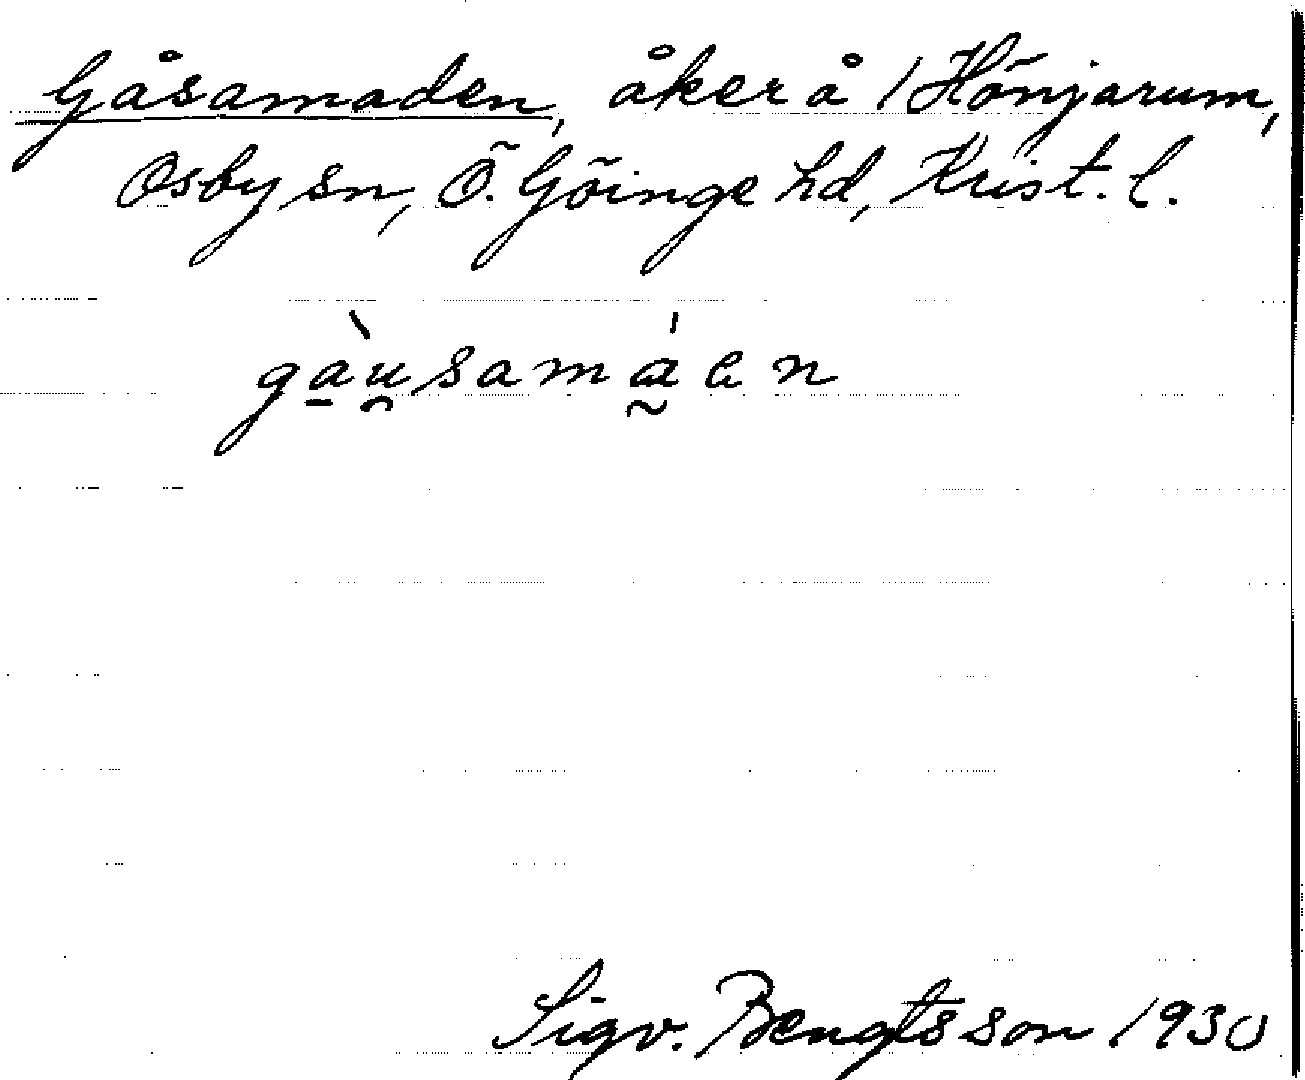 Gåsamaden, åker å 1 Hönjarum,
Osby sn, Ö. Göinge hd, Krist. l.
gàu̯samá̰en
Sigv. Bengtsson 1930